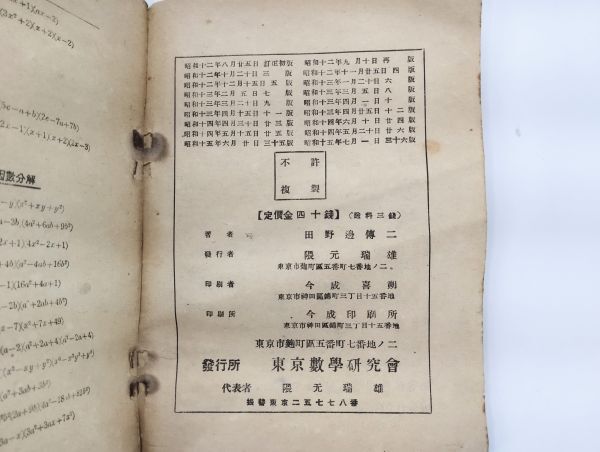 x+1)(ax-2)
(3x²+2)(x+2)(x-2)
(5c-a+b)(2c-7a+7b)
(2x-1)(x+1)(x+2)(2x-3)
因數分解
-y)(x²+xy+y²)
a-3b)(4a²+6ab+9b²)
2x+1)(4x²-2x+1)
+4b)(a²-4ab+16b²)
-1)(16a²+4a+1)
-2b)(a²+2ab+4b²)
x-7)(x²+7x+49)
(a-2)(a²+2a+4)(a²-2a+4)
a-x)(3a²+3ax+7x²)
昭和十二年八月廿五日 訂正初版 昭和十二年九月十日再版
昭和十二年十月二十日三版 昭和十二年十一月廿五日四版
昭和十二年十二月十五日五版 昭和十三年一月二十日六版
昭和十三年二月五日七版 昭和十三年三月五日八版
昭和十三年三月二十日九版 昭和十三年四月一日十版
昭和十三年四月十五日十一版 昭和十三年四月廿五日十二版
昭和十四年四月三十日廿三版 昭和十四年六月十日廿四版
昭和十四年五月十五日廿五版 昭和十四年五月二十日廿六版
昭和十五年六月廿日三十五版 昭和十五年七月一日三十六版
不許
複製
【定價金四十錢】(送料三錢)
著者 田野邊傳二
發行者 隈元瑞雄
東京市麹町區五番町七番地ノ二。
印刷者 今成喜朔
東京市神田區錦町三丁目十五番地
印刷所 今成印刷所
東京市神田區錦町三丁目十五番地
東京市麹町區五番町七番地ノ二
發行所 東京數學研究會
代表者 隈元瑞雄
振替東京二五七七八番